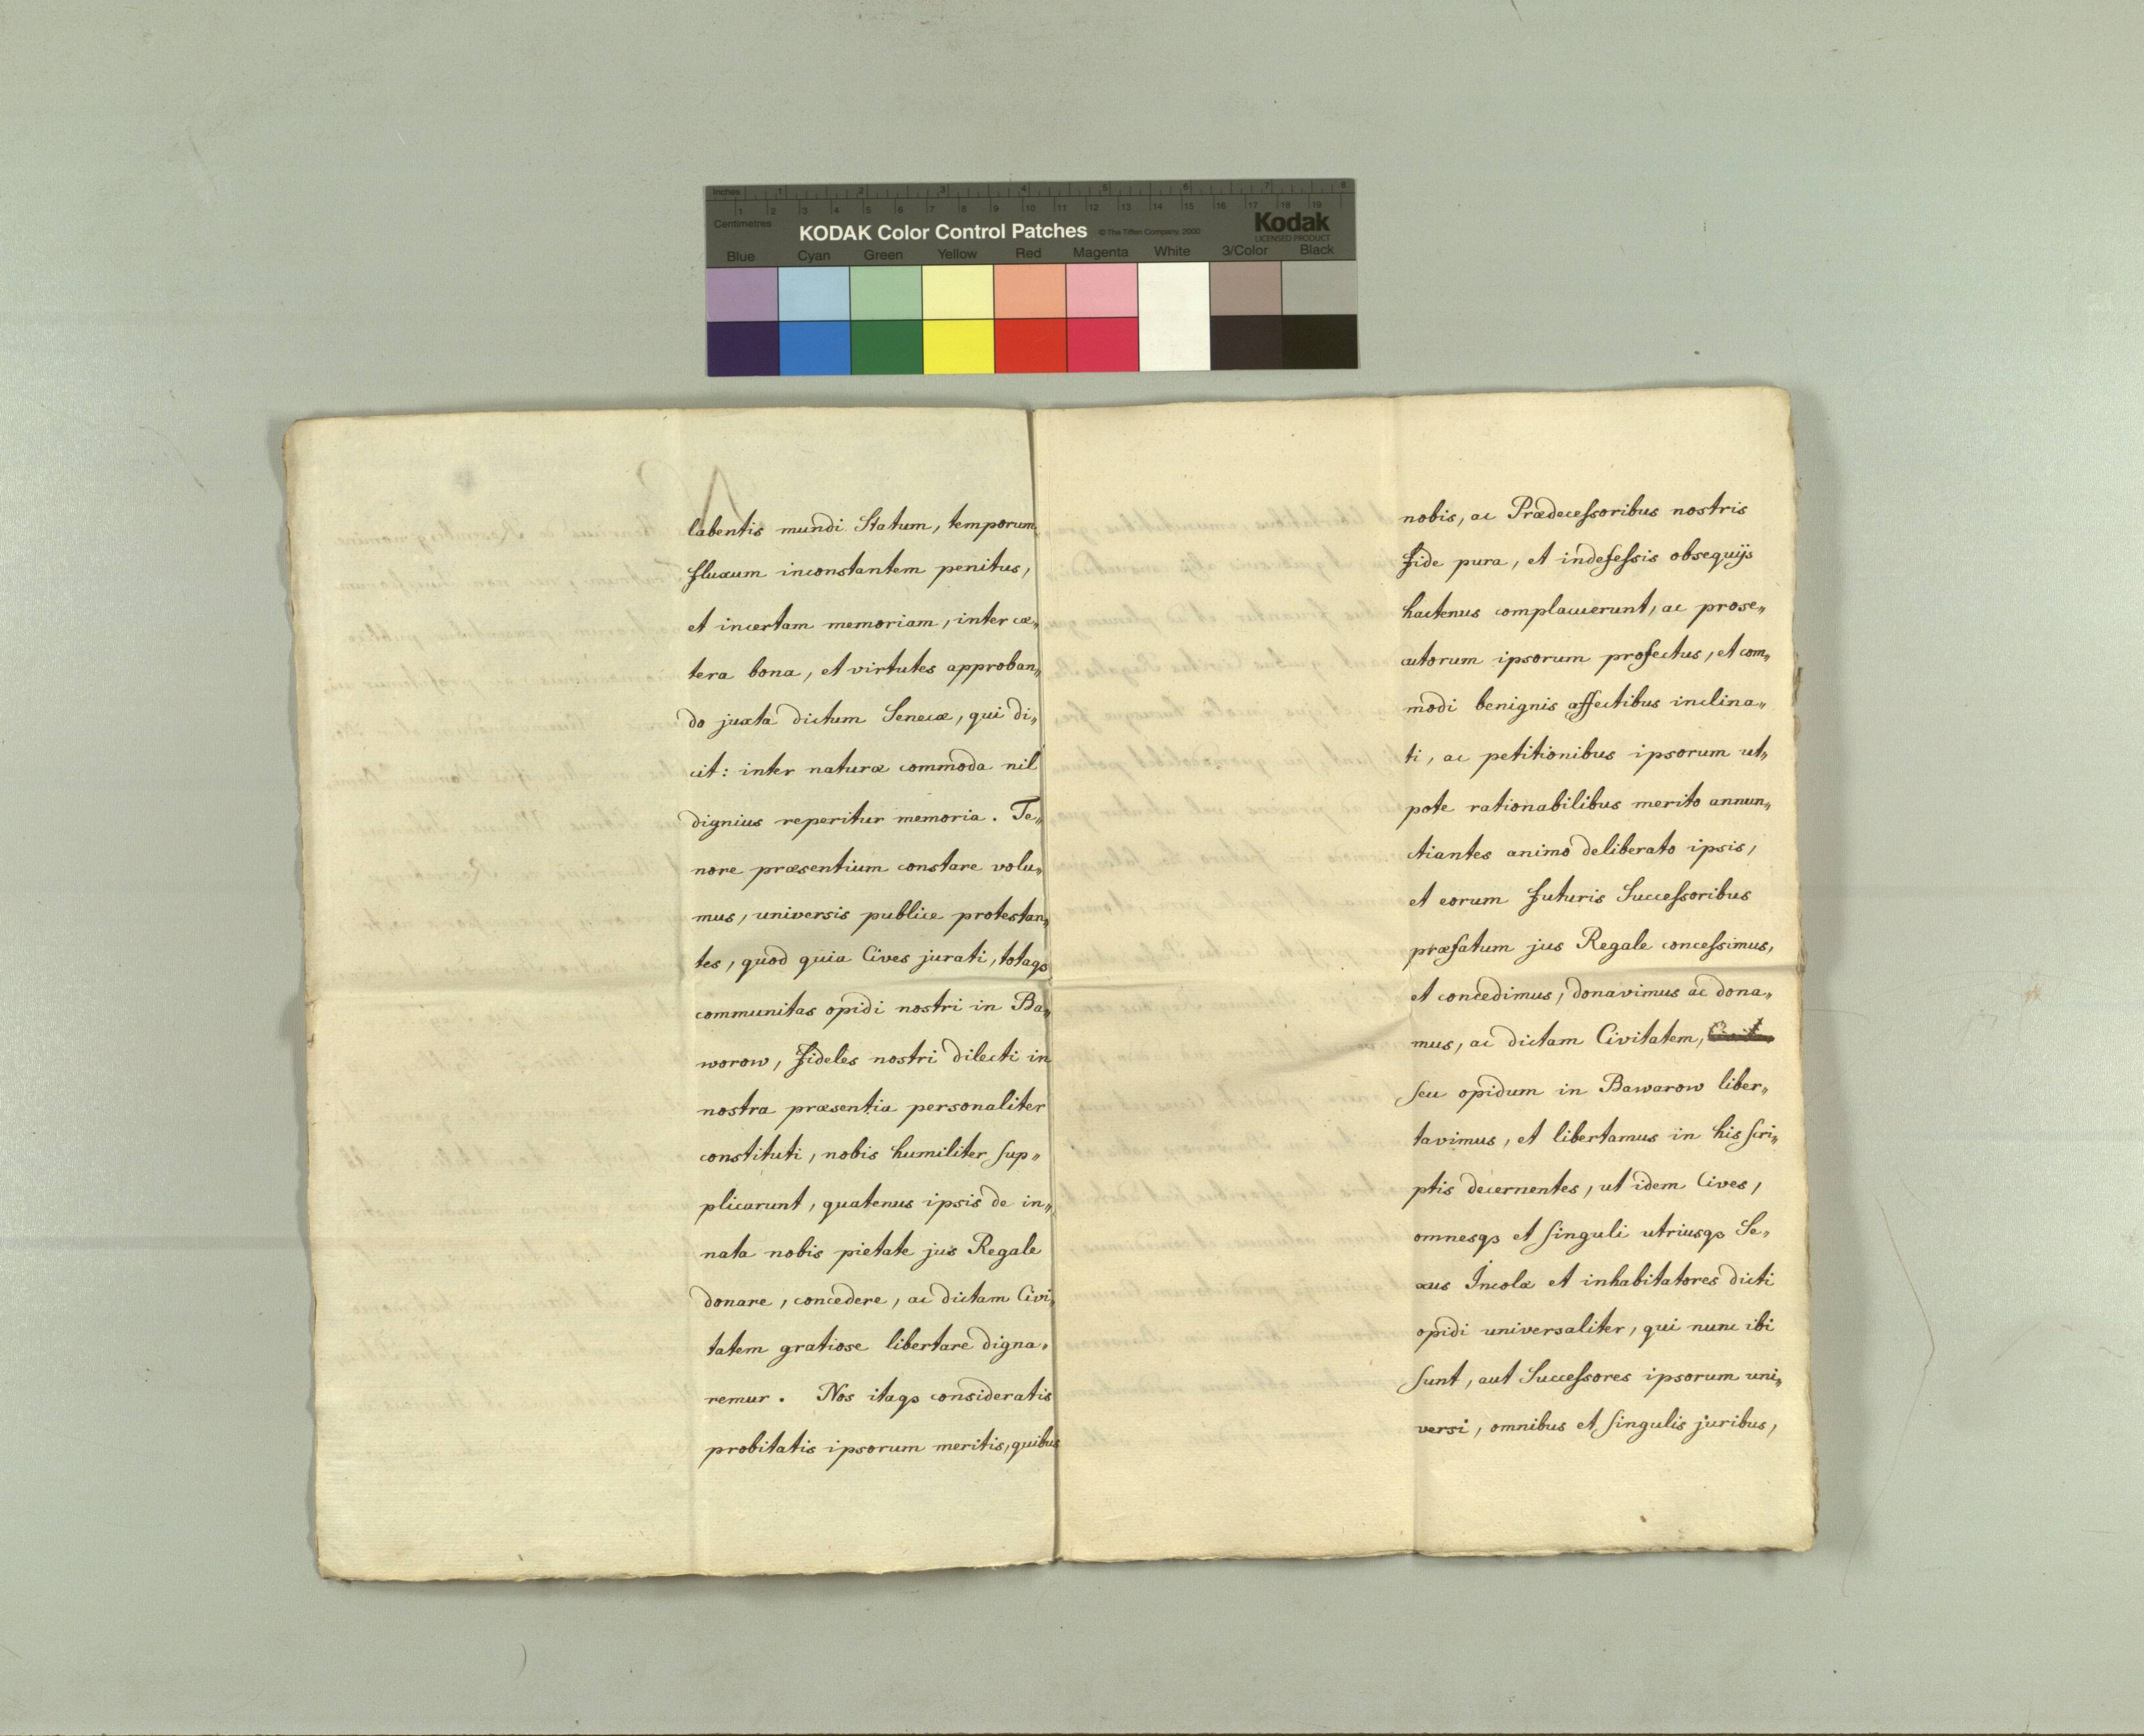 Inches 1 2 3 4 5 6 7 8
1 2 3 4 5 6 7 8 9 10 11 12 13 14 15 16 17 18 19
Centimetres
KODAK Color Control Patches © The Tiffen Company, 2000 Kodak
LICENSED PRODUCT
Blue Cyan Green Yellow Red Magenta White 3/Color Black
labentis mundi Statum, temporum
fluxum inconstantem penitus,
et incertam memoriam, inter cæ„
tera bona, et virtutes approban„
do juxta dictum Senecæ, qui di„
cit: inter naturæ commoda nil
dignius reperitur memoria. Te„
nore præsentium constare volu„
mus, universis publice protestan„
tes, quod quia Cives jurati, totaqз
communitas opidi nostri in Ba„
worow, fideles nostri dilecti in
nostra præsentia personaliter
constituti, nobis humiliter sup„
plicarunt, quatenus ipsis de in„
nata nobis pietate jus Regale
donare, concedere, ac dictam Civi„
tatem gratiose libertare digna„
remur. Nos itaqз consideratis
probitatis ipsorum meritis, quibus
nobis, ac Prædecessoribus nostris
fide pura, et indefessis obsequijs
hactenus complacuerunt, ac prose„
cutorum ipsorum profectus, et com„
modi benignis affectibus inclina„
ti, ac petitionibus ipsorum ut„
pote rationabilibus merito annun„
ctiantes animo deliberato ipsis,
et eorum futuris Successoribus
præfatum jus Regale concessimus,
et concedimus, donavimus ac dona„
mus, ac dictam Civitatem,
seu opidum in Bawarow liber„
tavimus, et libertamus in his scri„
ptis decernentes, ut idem Cives,
omnesqз et singuli utriusqз Se„
xus Incolæ et inhabitatores dicti
opidi universaliter, qui nunc ibi
sunt, aut Successores ipsorum uni„
versi, omnibus et singulis juribus,